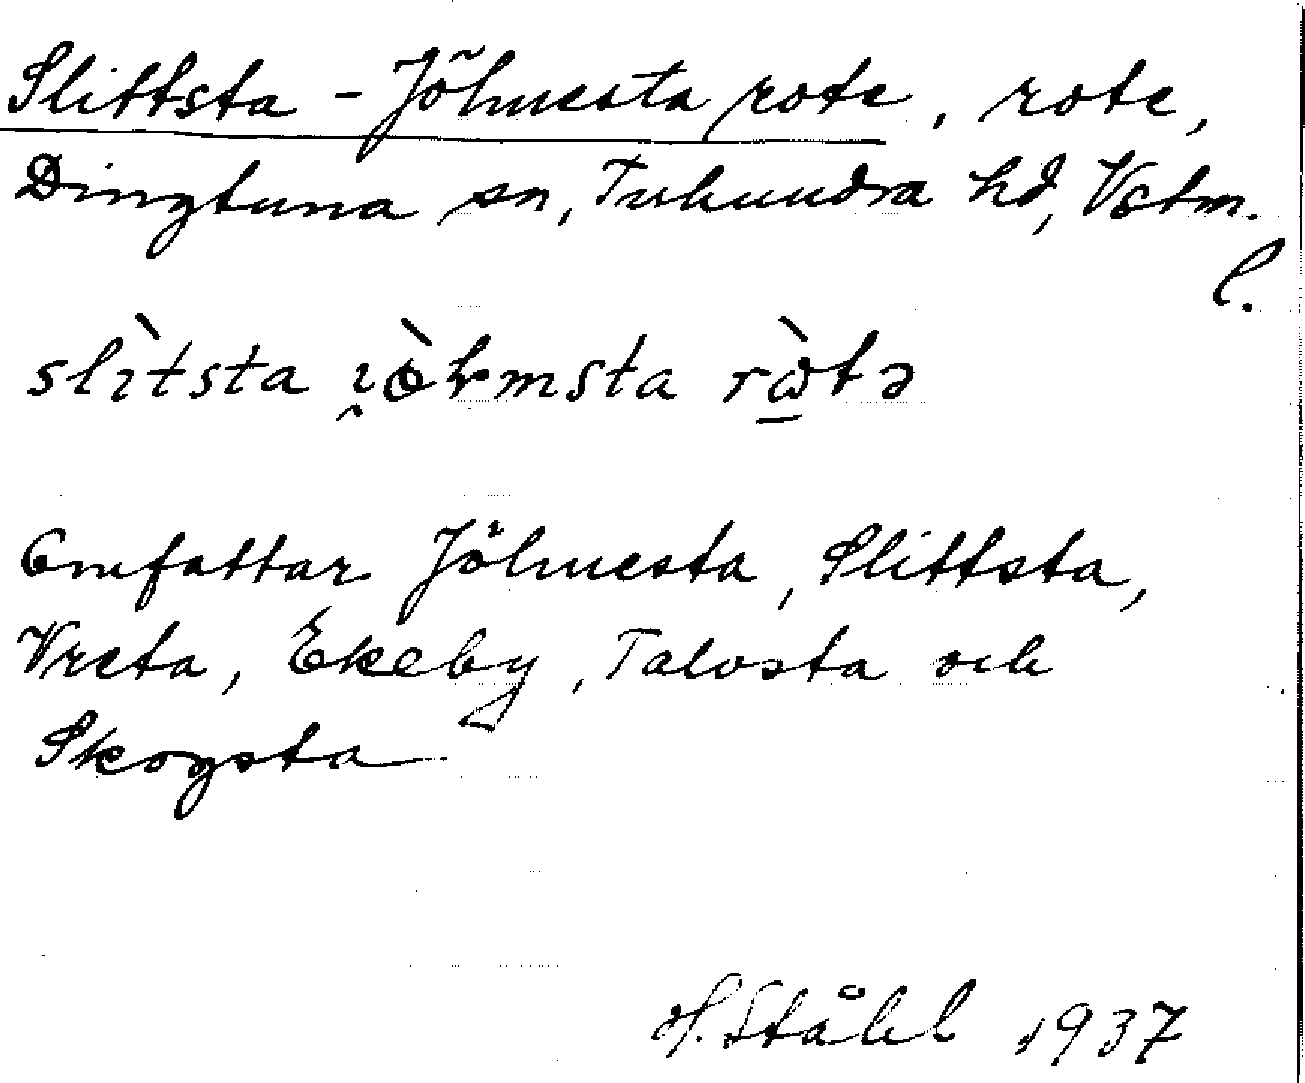 Slittsta - Jölmesta rote, rote,
Dingtuna sn, Tuhundra hd, Vstm.
l.
slìtsta rote
Omfattar Jölmesta, Slittsta,
Vreta, Ekeby, Talosta och
Skogsta
H. Ståhl 1937